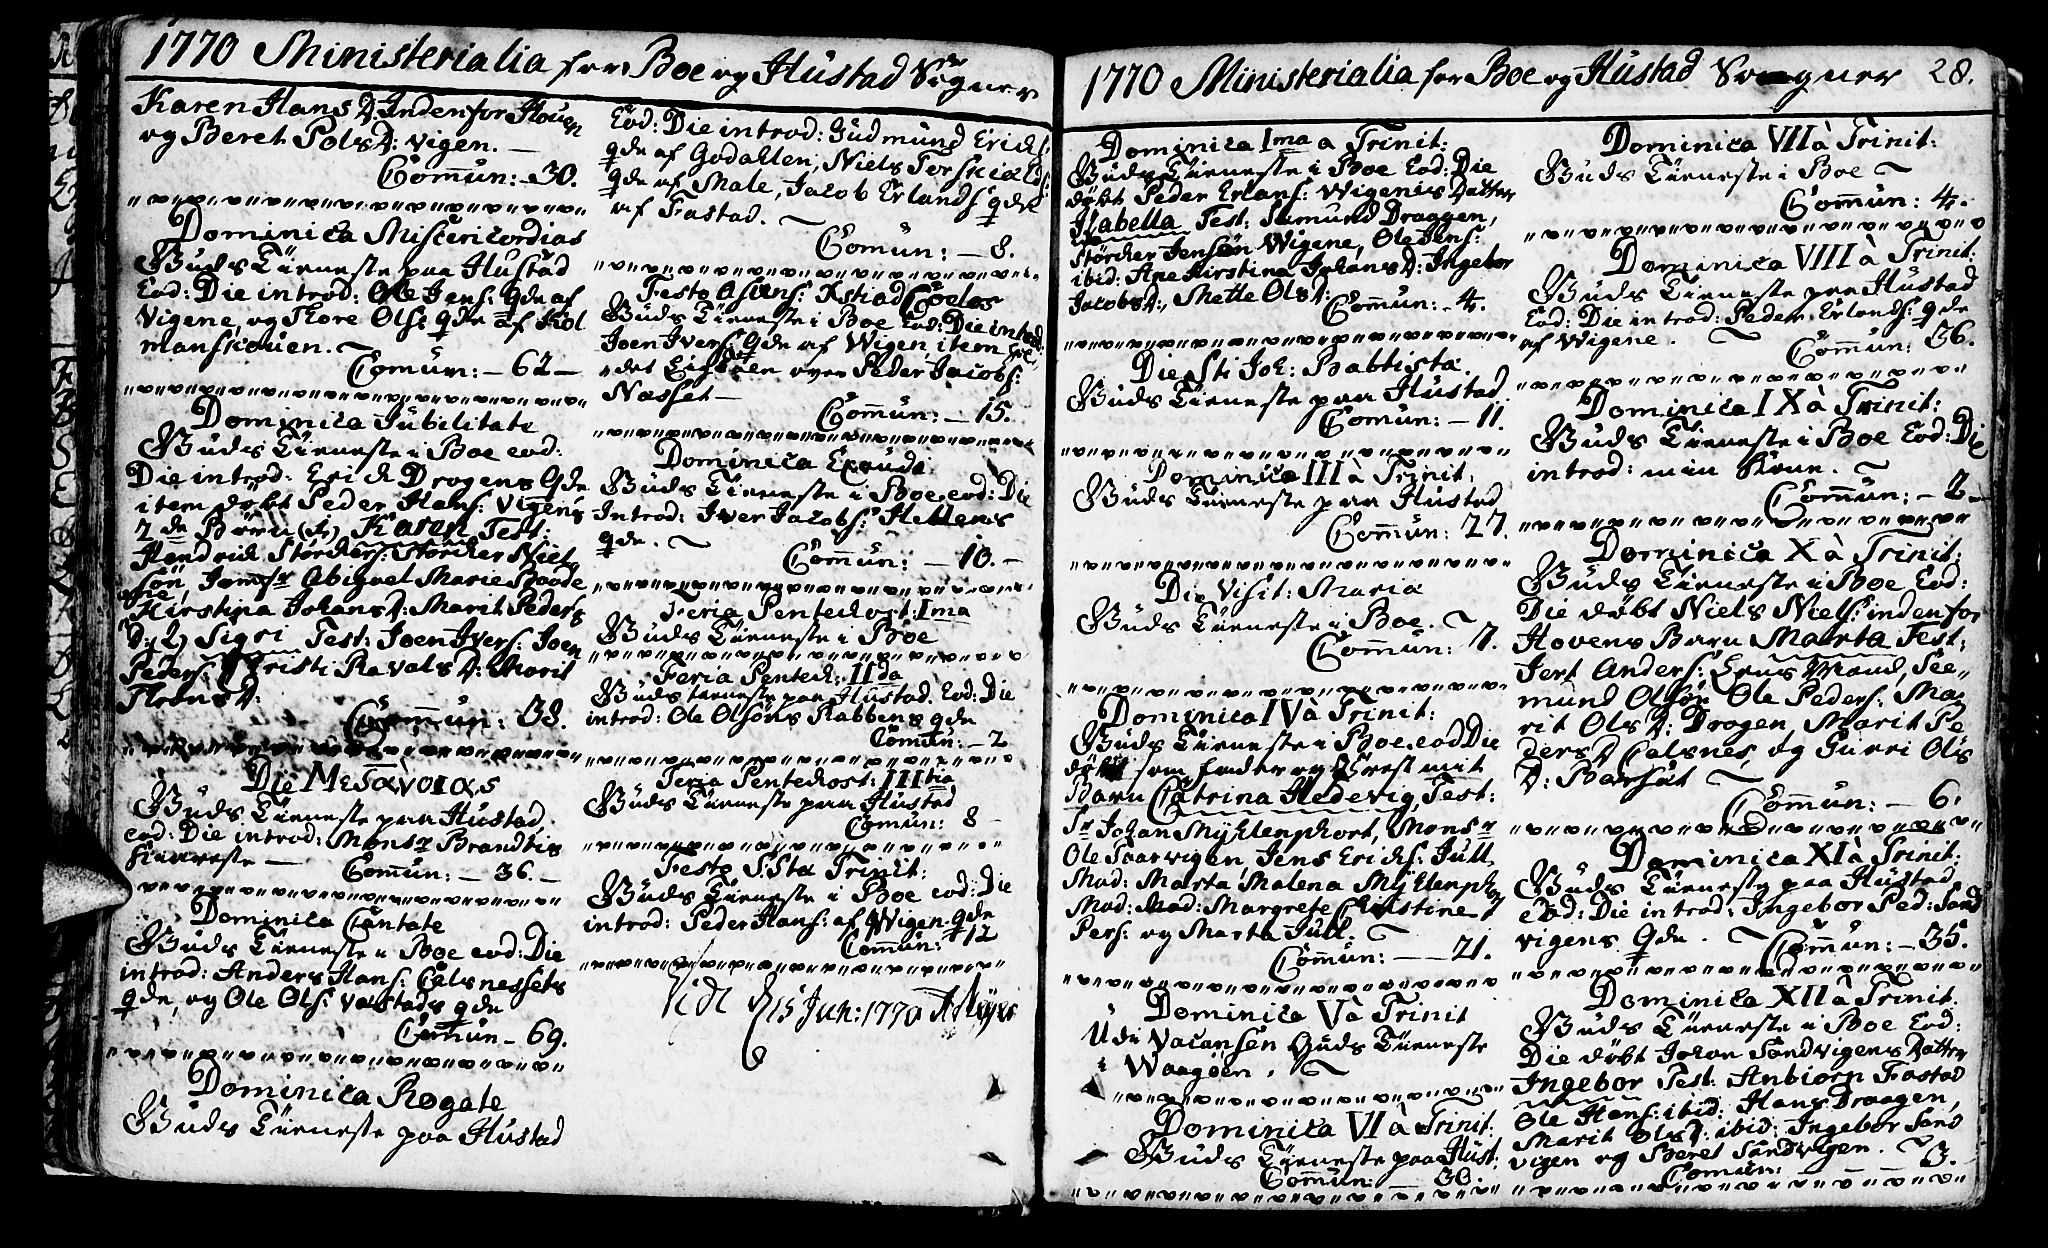 1770 Ministerialia for Boe og Hustad Sogner
Karen Hans D: Inden for Hoven
og Beret Pols D: Vigen. —
Com̄un: - 30.
Dominica Misericordias
Guds Tieneste paa Hustad
Eod: Die introd: Ole Jens: qde af
Vigene, og Tore Ols: qde af Kol
manskouen. ~
Comum: — 62 —
Dominica Jubilitate
Guds Tieneste i Boe eod:
Die introd: Erich Drogens qde
item døbt Peder Hans: Vigens
2de Børn (1) Karen Test:
Hendrich Størkers: Størcker Niel
søn, Jomfr Abiguel Marie Baade
Kirstina Johans D: Marit Peders
D: 2) Sigri Test: Joen Ivers: Joen
Peders: Kristi Ravals D: Marit
Throns D:
Com̄un: 38.
Die Μετανοιας
Guds Tieneste paa Hustad.
eod: Die introd: Monsr Brandtis
Kiæreste — Com̄un: — 36. —
Dominica Cantate
Guds Tieneste i Boe eod: Die
introd: Anders Hans: Celsnessets
qde, og Ole Ols: Valstads qde
Com̄un - 69.
Dominica Rogate
Guds Tieneste paa Hustad
Eod: Die introd: Gudmund Erichs:
qde af Godahlen, Niels Torskields:
qde af Male, Jacob Erlands qde
af Fastad. ~
Com̄un: — 8.
Festo Asens: Xsti ad Coelos
Guds Tieneste i Boe Eod: Die introd:
Joen Ivers: qde af Wigen, item
Peder Jacobs:
Nesset —
Com̄un: — 15.
Dominica Exaudi
Guds Tieneste i Boe eod: Die
Introd: Iver Jacobs: Hellens
qde. ~
Com̄un: — 10. —
Feria Pentecost: Ima
Guds Tieneste i Boe
Feria Pentec: IIda
Guds tieneste paa Hustad. Eod: Die
introd: Ole Olsøns Rabbens qde
Com̄un: — 2
Feria Pentecost: IIItia
Guds Tieneste paa Hustad
Com̄un: 8 —
Festo SSta Trinit:
Guds Tieneste i Boe eod: Die
introd: Peder Hans: af Wigen qde
Com̄un: 12
Vidi d 15 Jun: 1770
1770 Ministerialia for Boe og Hustad Sogner 28.
Dominica Ima a Trinit:
Guds Tieneste i Boe Eod: Die
døbt Peder Erlans: Wigenis Datter
Isabella Test: Samund Draagen,
Størcker Jensøn Wigene, Ole Jens:
ibid: Ane Kirstina Johans D: Ingebor
Jacobs D:, Mette Ols D:
Com̄un: - 4.
Die Sti Joh: Babtista.
Guds Tieneste paa Hustad
Com̄un: — 11.
Dominica III à Trinit:
Guds Tieneste paa Hustad
Com̄un: 27.
Die Visit: Maria
Guds Tieneste i Boe. ~
Com̄un: 7.
Dominica IV à Trinit:
Guds Tieneste i Boe. eod Die
døbt som fader og Præst mit
Barn Catrina Hedevig, Test:
Sr Johan Myhlenphort, Monsr
Ole Taarvigen, Jens Erichs: Jull,
Mad: Marta Malena Myhlenphort
Mad: Mad: Margrete Christine
Pers: og Marta Jull. ~
Com̄un: — 21.
Dominica V à Trinit
Udi Vacansen Guds Tieneste
i Waagøen. ~
Dominica VI à Trinit:
Guds Tieneste paa Hust:
Com̄un: — 30.
Dominica VII à Trinit:
Guds Tieneste i Boe ~
Com̄un: 4.
Dominica VIII à Trinit:
Guds Tieneste paa Hustad
Eod: Die introd: Peder Erlands: qde
af Wigene. ~
Com̄un: 36.
Dominica IX à Trinit:
Guds Tieneste i Boe Eod: Die
introd: min Kone. ~
Com̄un: — 2 —
Dominica X à Trinit:
Guds Tieneste i Boe Eod:
Die døbt Niels Niels: inden for
Hovens Barn Marta Test:
Jert Anders: Enus Mand, See-
mund Olsøn Ole Peders: Ma-
rit Ols D: Drogen, Marit Pe
ders D Celsnes, og Gurri Ols
D: Barsæt ~
Com̄un: — 6.
Dominica XI à Trinit:
Guds Tieneste paa Hustad
eod: Die introd: Ingebor Ped: Sand
vigens qde. ~ Com̄un: — 35.
Dominica XII à Trinit
Guds Tieneste i Boe Eod:
Die døbt Johan Sandvigens Datter
Ingebor Test: Anbiørn Fastad
Ole Hans: ibid: Hans Draagen,
Marit Ols D: ibid: Ingebor Sand
vigen og Beret Sandvigen. ~
Com̄un: 3.